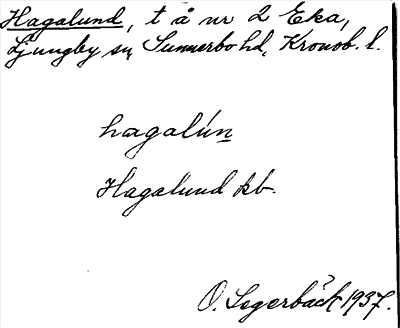 Hagalund, t å nr 2 Eka,
Ljungby sn, Sunnerbo hd, Kronob. l.
hagalún
Hagalund kb.
O. Segerbäck 1937.